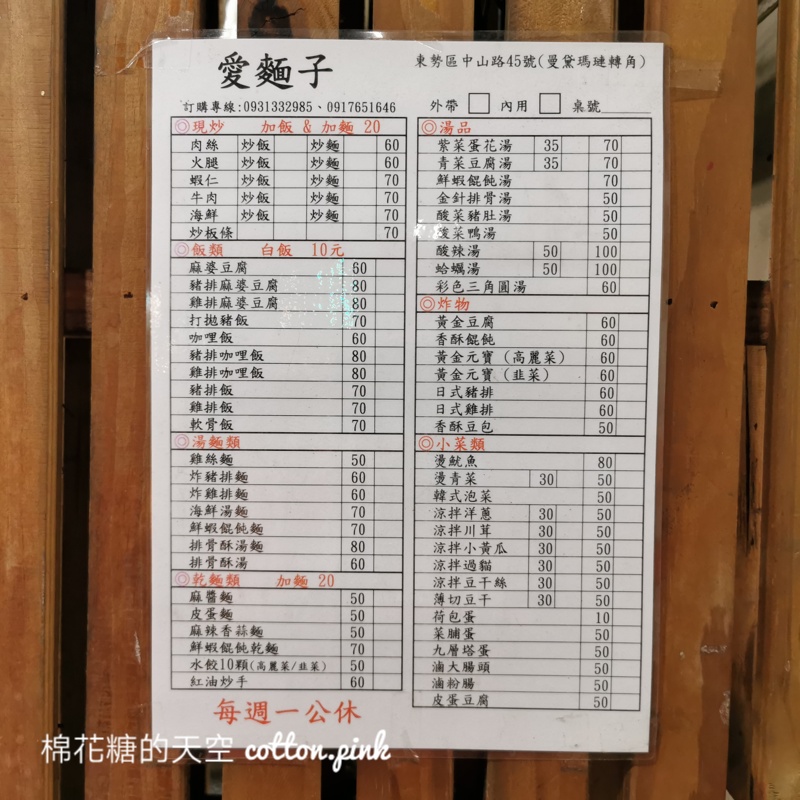 愛麵子
東勢區中山路45號(曼黛瑪璉轉角)
訂購專線:0931332985、0917651646
外帶 內用 桌號
◎現炒 加飯 & 加麵 20
肉絲 炒飯 炒麵 60
火腿 炒飯 炒麵 60
蝦仁 炒飯 炒麵 70
牛肉 炒飯 炒麵 70
海鮮 炒飯 炒麵 70
炒板條 70
◎飯類 白飯 10元
麻婆豆腐 60
豬排麻婆豆腐 80
雞排麻婆豆腐 80
打拋豬飯 70
咖哩飯 60
豬排咖哩飯 80
雞排咖哩飯 80
豬排飯 70
雞排飯 70
軟骨飯 70
◎湯麵類
雞絲麵 50
炸豬排麵 60
炸雞排麵 60
海鮮湯麵 70
鮮蝦餛飩麵 70
排骨酥湯麵 80
排骨酥湯 60
◎乾麵類 加麵 20
麻醬麵 50
皮蛋麵 50
麻辣香蒜麵 50
鮮蝦餛飩乾麵 70
水餃10顆(高麗菜/韭菜) 50
紅油炒手 60
每週一公休
◎湯品
紫菜蛋花湯 35 70
青菜豆腐湯 35 70
鮮蝦餛飩湯 70
金針排骨湯 50
酸菜豬肚湯 50
酸菜鴨湯 50
酸辣湯 50 100
蛤蠣湯 50 100
彩色三角圓湯 60
◎炸物
黃金豆腐 60
香酥餛飩 60
黃金元寶(高麗菜) 60
黃金元寶(韭菜) 60
日式豬排 60
日式雞排 60
香酥豆包 50
◎小菜類
燙魷魚 80
燙青菜 30 50
韓式泡菜 50
涼拌洋蔥 30 50
涼拌川茸 30 50
涼拌小黃瓜 30 50
涼拌過貓 30 50
涼拌豆干絲 30 50
薄切豆干 30 50
荷包蛋 10
菜脯蛋 50
九層塔蛋 50
滷大腸頭 50
滷粉腸 50
皮蛋豆腐 50
棉花糖的天空 cotton.pink